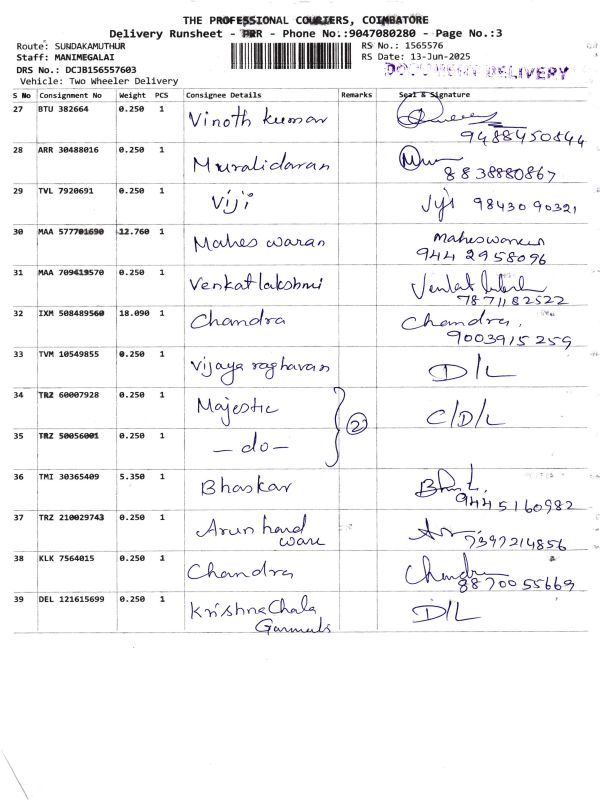 THE PROFESSIONAL COURIERS, COIMBATORE
Delivery Runsheet - PRR - Phone No.:9047080280 - Page No.:3
Route: SUNDAKAMUTHUR
RS No.: 1565576
Staff: MANIMEGALAI
RS Date: 13-Jun-2025
DRS No.: DCJB156557603
DOCUMENT DELIVERY
Vehicle: Two Wheeler Delivery
S No Consignment No Weight PCS Consignee Details Remarks Seal & Signature
27 BTU 382664 0.250 1 Vinoth kumar
9488450544
28 ARR 30488016 0.250 1 Muralidaran
8838880867
29 TVL 7920691 0.250 1 Viji Vji 98430 90321
30 MAA 577701690 12.760 1 Mahes waran Maheswaran
944 2958096
31 MAA 709419570 0.250 1 Venkatlakshmi
7871182522
32 IXM 508489560 18.090 1 Chandra Chandra.
9003915259
33 TVM 10549855 0.250 1 Vijaya raghavan D/L
34 TRZ 60007928 0.250 1 Majestic 2 C/D/L
35 TRZ 50056001 0.250 1 -do-
36 TMI 30365409 5.350 1 Bhaskar
9445160982
37 TRZ 210029743 0.250 1 Arun hard
ware 7397214856
38 KLK 7564015 0.250 1 Chandra Chandra
8870055669
39 DEL 121615699 0.250 1 KrishnaChala D/L
Garments